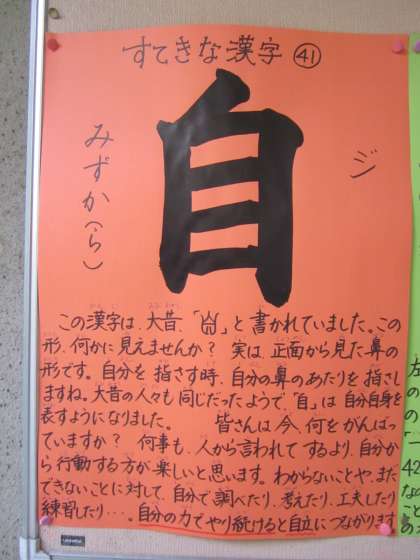 すてきな漢字 41
自
ジ
みずか(ら)
この漢字は、大昔、「」と書かれていました。この
形、何かに見えませんか？ 実は、正面から見た鼻の
形です。自分を指さす時、自分の鼻のあたりを指さし
ますね。大昔の人々も同じだったようで、「自」は自分自身を
表すようになりました。 皆さんは今、何をがんばっ
ていますか？ 何事も、人から言われてするより、自分か
ら行動する方が楽しいと思います。わからないことや、まだ
できないことに対して、自分で調べたり、考えたり、工夫したり
練習したり…。自分の力でやり続けると自立につながります。
左
の
の
42
な
こと